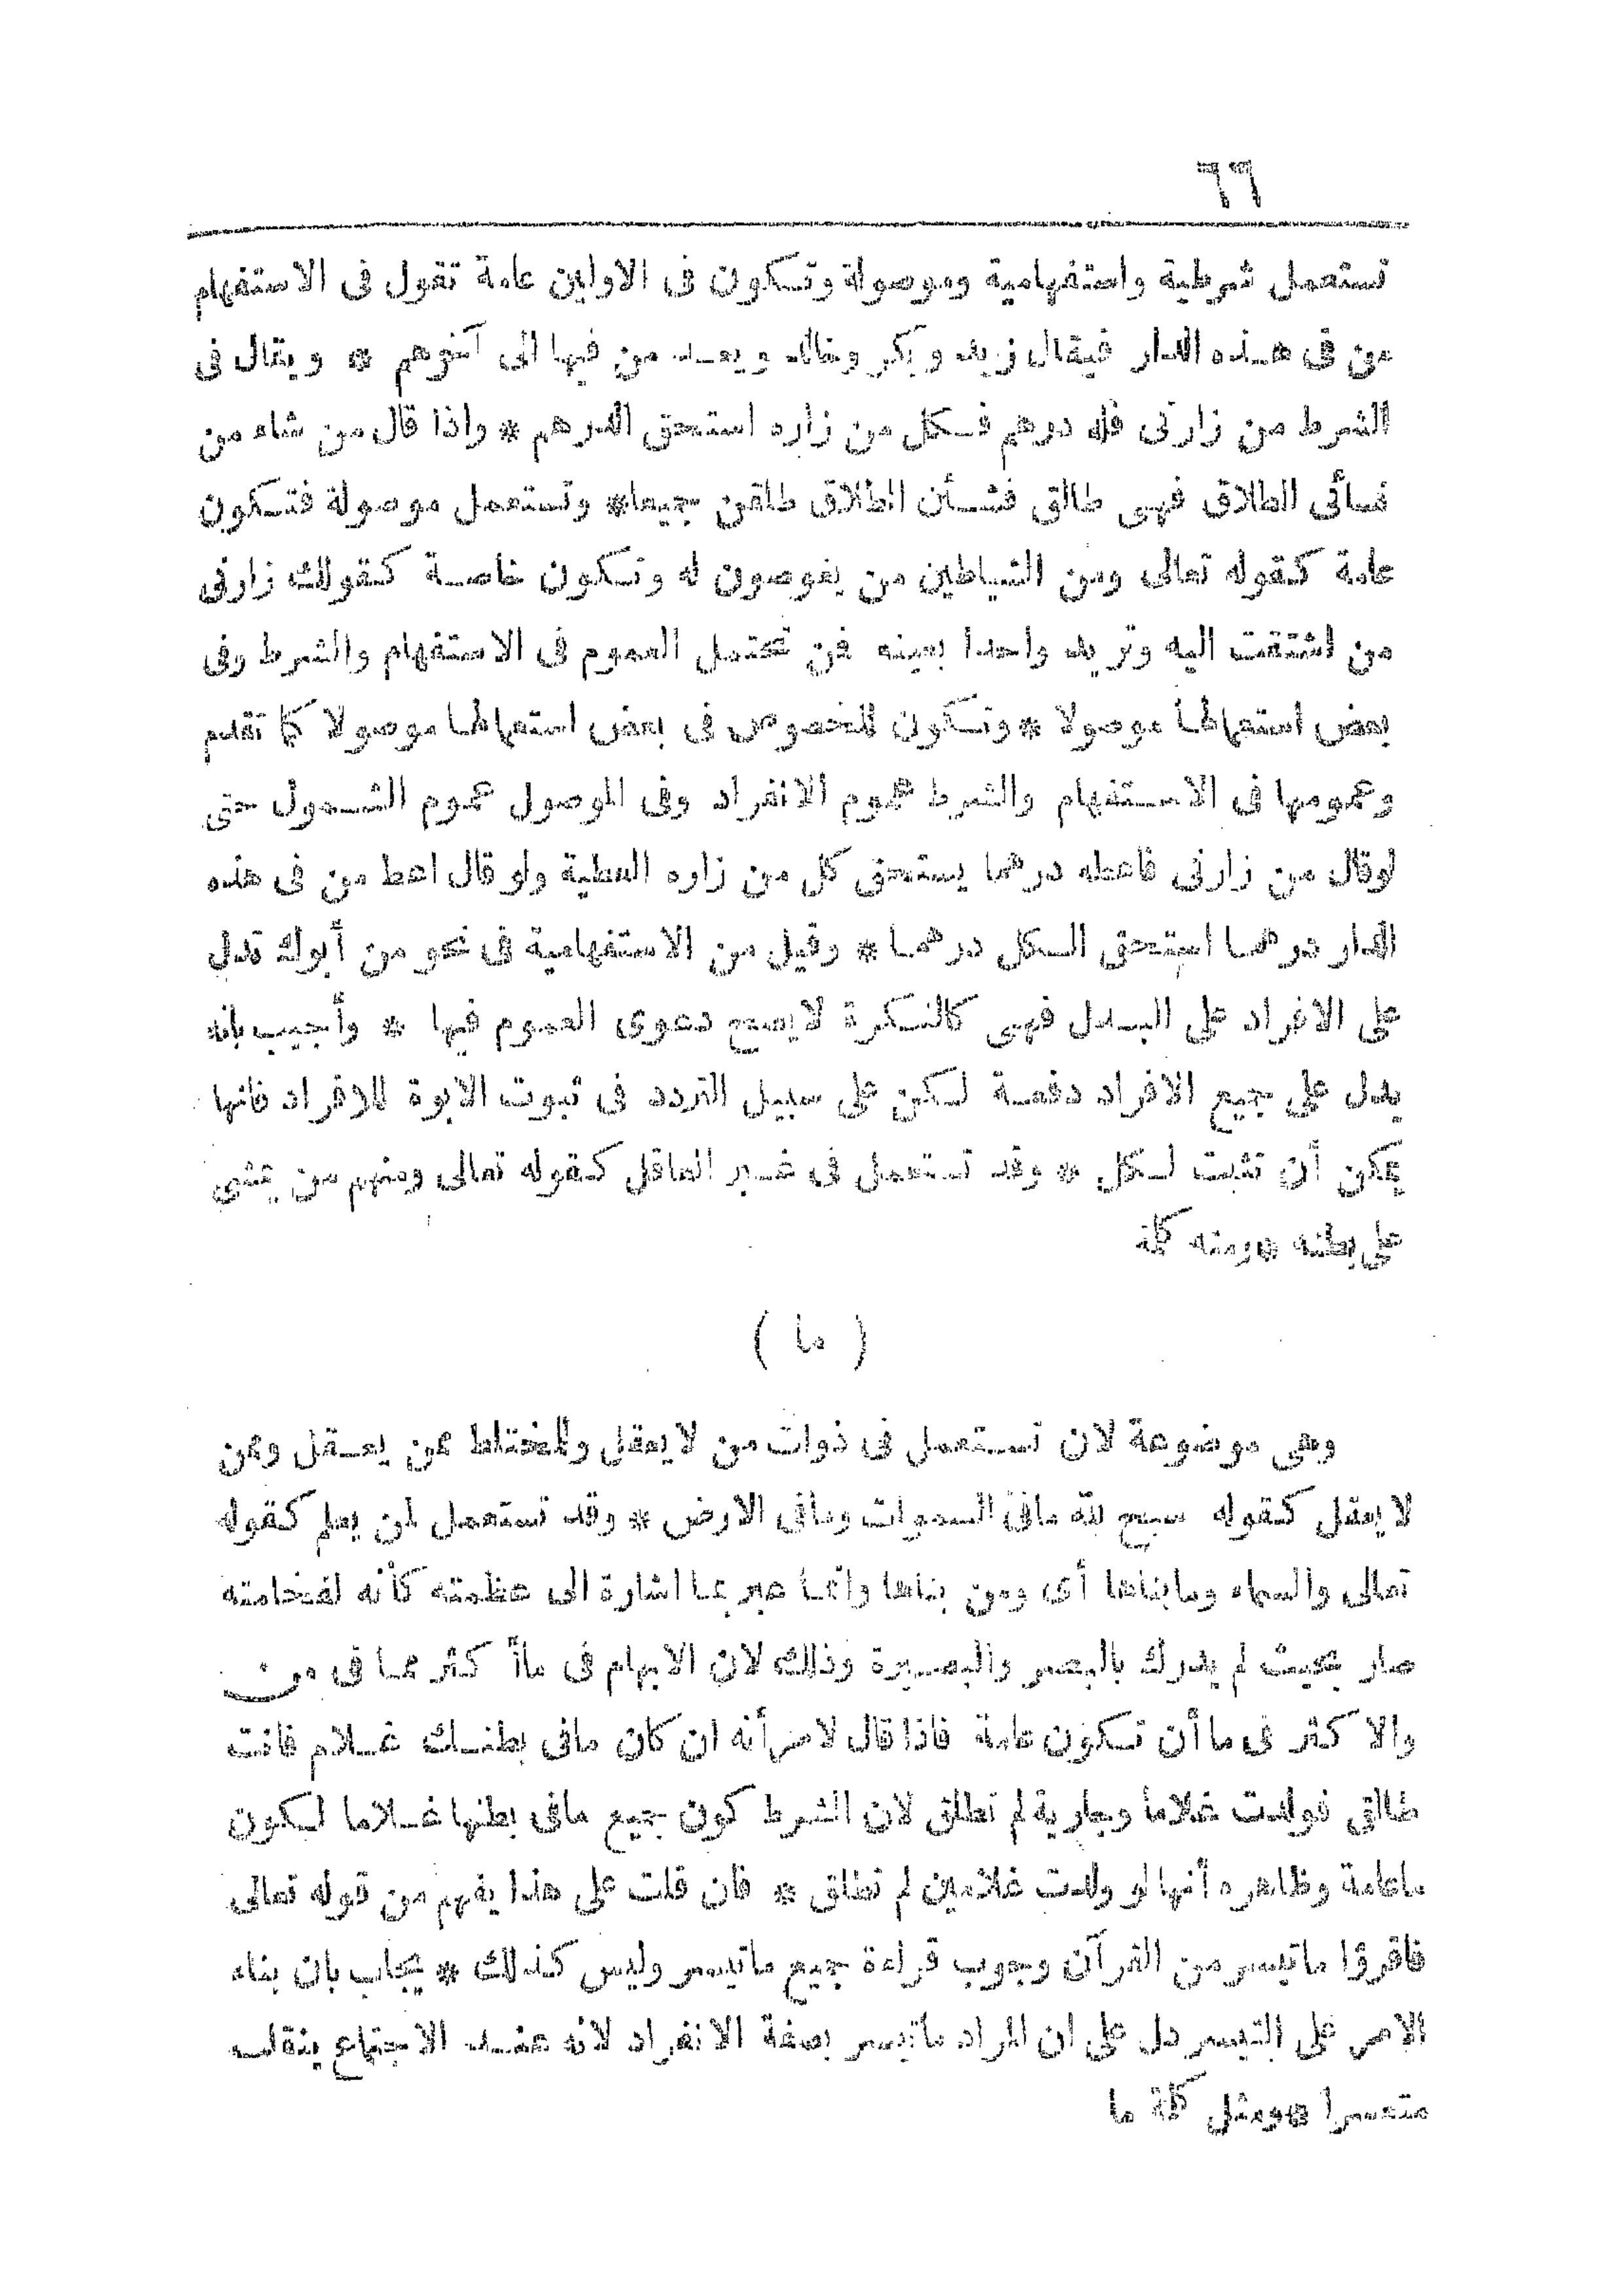 ٦٦
تستعمل شرطية واستفهامية وموصولة وتكون فى الاولين عامة تقول فى الاستفهام
من فى هذه الدار فيقال زيد وبكر وخالد ويعد من فيها الى آخرهم * ويقال فى
الشرط من زارنى فله درهم فكل من زاره استحق الدرهم * واذا قال من شاء من
نسائى الطلاق فهى طالق فشئن الطلاق طلقن جميعا * وتستعمل موصولة فتكون
عامة كقوله تعالى ومن الشياطين من يغوصون له وتكون خاصة كقولك زارنى
من اشتقت اليه وتريد واحدا بعينه فمن تحتمل العموم فى الاستفهام والشرط وفى
بعض استعمالها موصولا * وتكون للخصوص فى بعض استعمالها موصولا كما تقدم
وعمومها فى الاستفهام والشرط عموم الانفراد وفى الموصول عموم الشمول حتى
لوقال من زارنى فاعطه درهما يستحق كل من زاره العطية ولو قال اعط من فى هذه
الدار درهما استحق الكل درهما * وقيل من الاستفهامية فى نحو من أبوك تدل
على الافراد على البدل فهى كالنكرة لايصح دعوى العموم فيها * وأجيب بانه
يدل على جميع الافراد دفعة لكن على سبيل التردد فى ثبوت الابوة للافراد فانها
يمكن أن تثبت لكل * وقد تستعمل فى غير العاقل كقوله تعالى ومنهم من يمشى
على بطنه * ومنه كلمة
( ما )
وهى موضوعة لان تستعمل فى ذوات من لايعقل وللمختلط ممن يعقل وممن
لايعقل كقوله سبح لله مافى السموات ومافى الارض * وقد تستعمل لمن يعلم كقوله
تعالى والسماء ومابناها أى ومن بناها وانما عبر بما اشارة الى عظمته كأنه لفخامته
صار بحيث لم يدرك بالبصر والبصيرة وذلك لان الابهام فى ماأ كثر مما فى من
والا كثر فى ما أن تكون عامة فاذا قال لامرأته ان كان مافى بطنك غلام فانت
طالق فولدت غلاما وجارية لم تطلق لان الشرط كون جميع مافى بطنها غلاما لكون
ماعامة وظاهره أنها لو ولدت غلامين لم تطلق * فان قلت على هذا يفهم من قوله تعالى
فاقرؤا ماتيسر من القرآن وجوب قراءة جميع ماتيسر وليس كذلك * يجاب بان بناء
الامر على التيسر دل على ان المراد ماتيسر بصفة الانفراد لانه عند الاجتماع ينقلب
متعسرا * ومثل كلمة ما